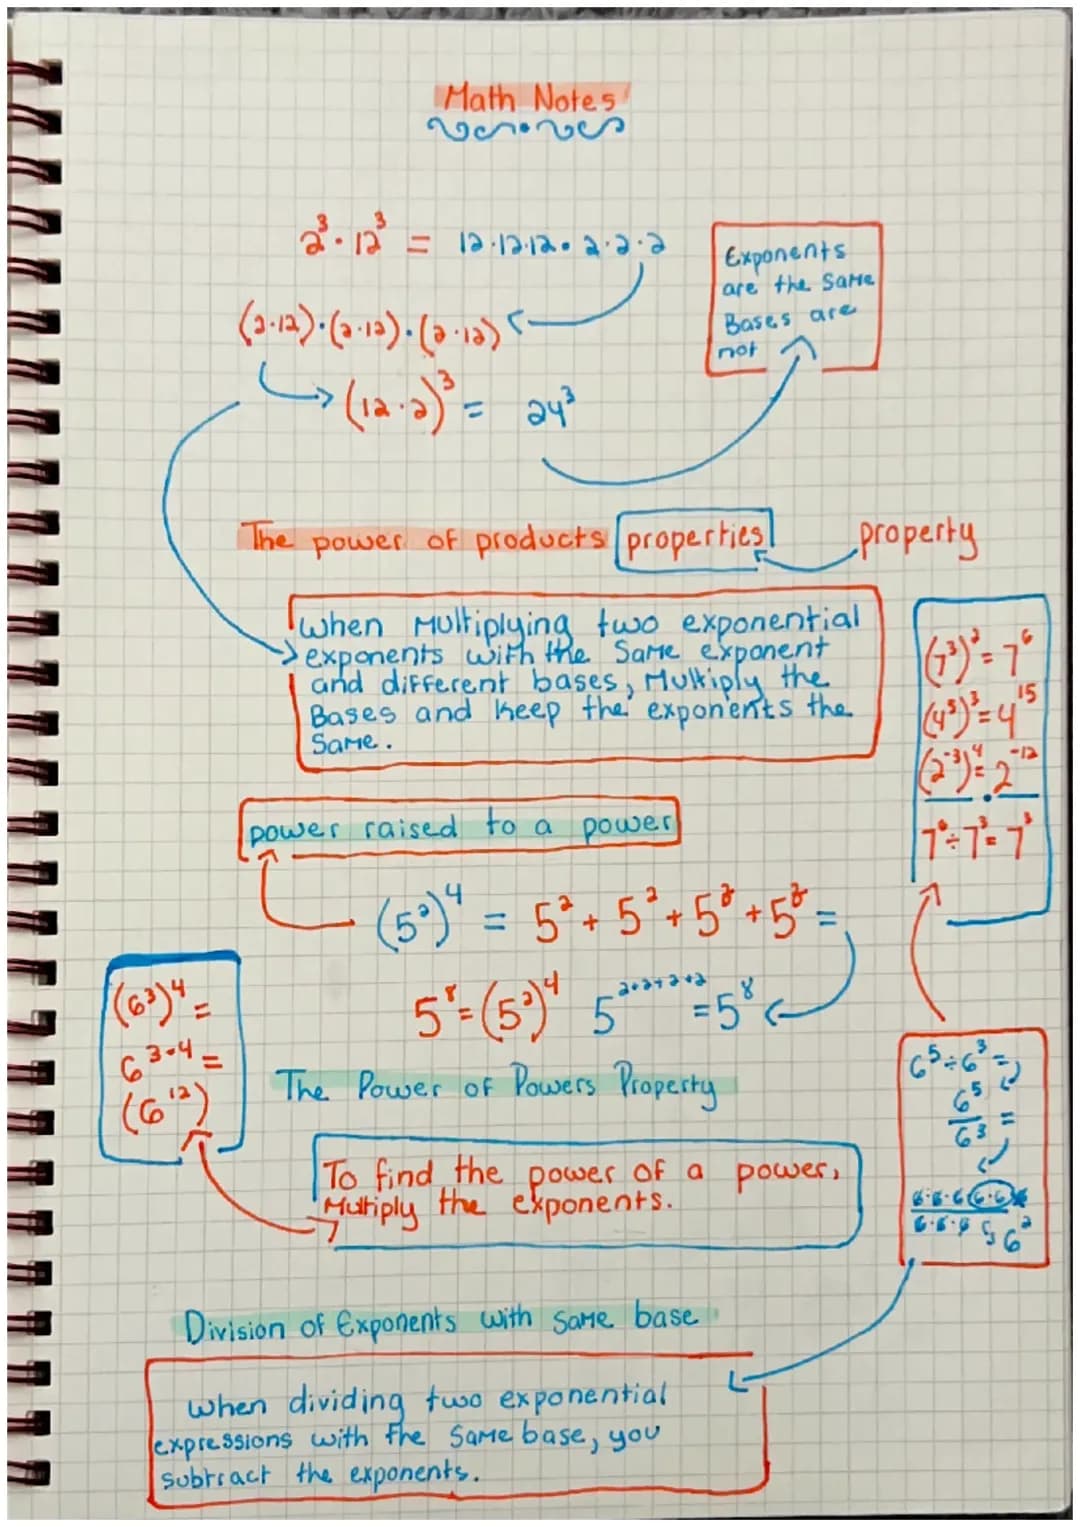 Math Notes
2³ · 12³ = 12·12·12 · 2·2·2
Exponents
are the same
Bases are
not
(2·12)·(2·12)·(2·12)
(12·2)³ = 24³
The power of products properties property
when Multiplying two exponential
exponents with the same exponent
and different bases, Multiply the
Bases and keep the exponents the
same.
(7³)² = 7⁶
(4⁵)³ = 4¹⁵
(2⁻³)⁴ = 2⁻¹²
7⁶ ÷ 7³ = 7³
power raised to a power
(5²)⁴ = 5² + 5² + 5² + 5² =
5⁸ = (5²)⁴ 5²⁺²⁺²⁺² = 5⁸
(6³)⁴ =
6³·⁴ =
(6¹²)
The Power of Powers Property
To find the power of a power,
Multiply the exponents.
6⁵ ÷ 6³ =
6⁵
6³ =
6·6·6 6·6
6·6·6 6²
Division of Exponents with same base
when dividing two exponential
expressions with the same base, you
subtract the exponents.